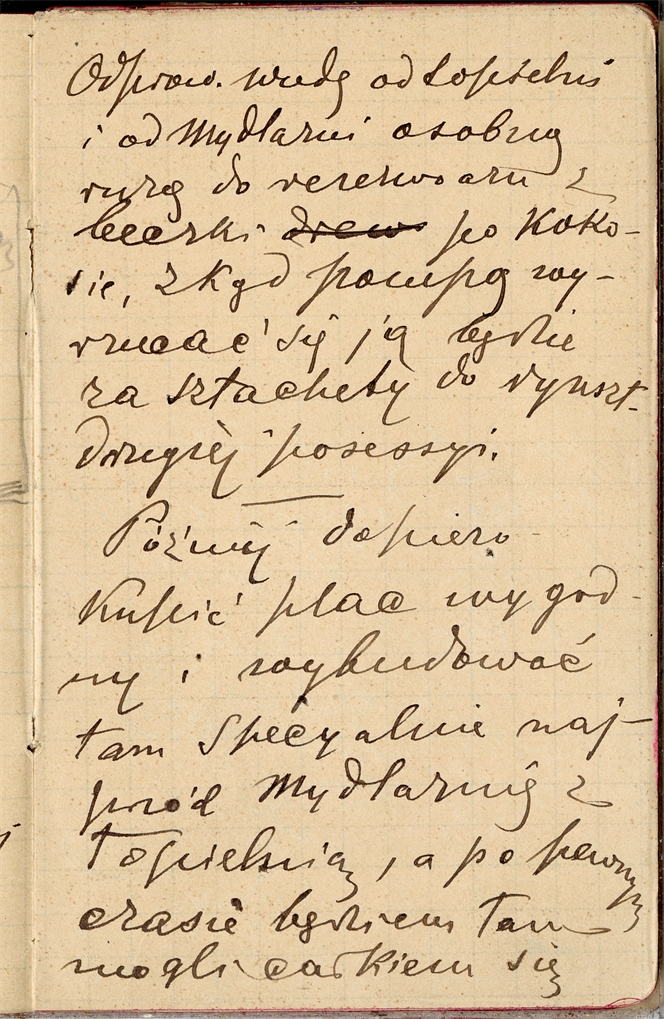 Odprow. wodę od topielni
i od Mydlarni osobną
rurą do rezerwoaru z
beczki drew po Koko-
sie, zkąd pompą wy-
rzucać się ją będzie
za sztachety do rynszt.
drugiej posessyi.
Później dopiero
Kupić plac wygod-
ny i wybudować
tam specyalnie naj-
pród Mydlarnię z
Topielnią, a po pewnym
czasie będziem tam
mogli całkiem się